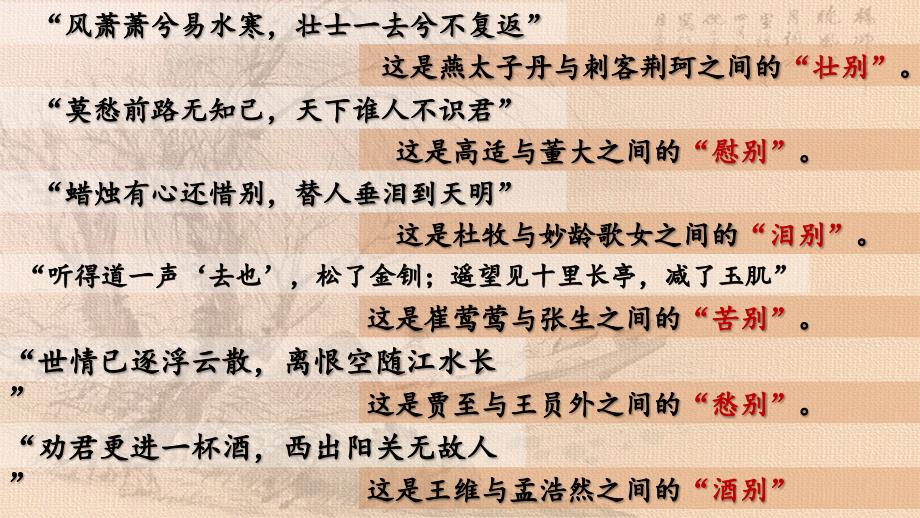 “风萧萧兮易水寒，壮士一去兮不复返”
这是燕太子丹与刺客荆珂之间的“壮别”。
“莫愁前路无知己，天下谁人不识君”
这是高适与董大之间的“慰别”。
“蜡烛有心还惜别，替人垂泪到天明”
这是杜牧与妙龄歌女之间的“泪别”。
“听得道一声‘去也’，松了金钏；遥望见十里长亭，减了玉肌”
这是崔莺莺与张生之间的“苦别”。
“世情已逐浮云散，离恨空随江水长
”
这是贾至与王员外之间的“愁别”。
“劝君更进一杯酒，西出阳关无故人
”
这是王维与孟浩然之间的“酒别”